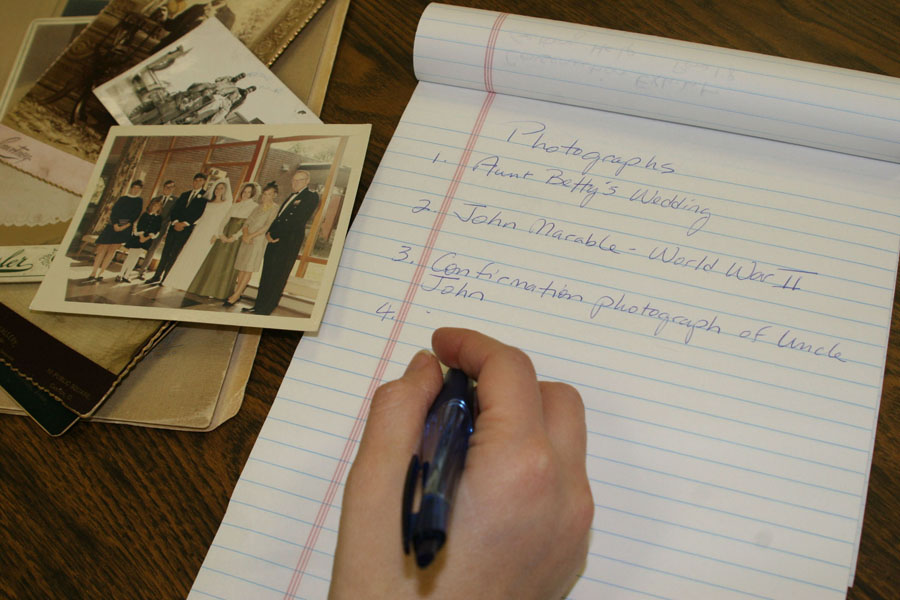 Photographs
1. Aunt Betty's Wedding
2. John Marable - World War II
3. Confirmation photograph of Uncle
John
4.